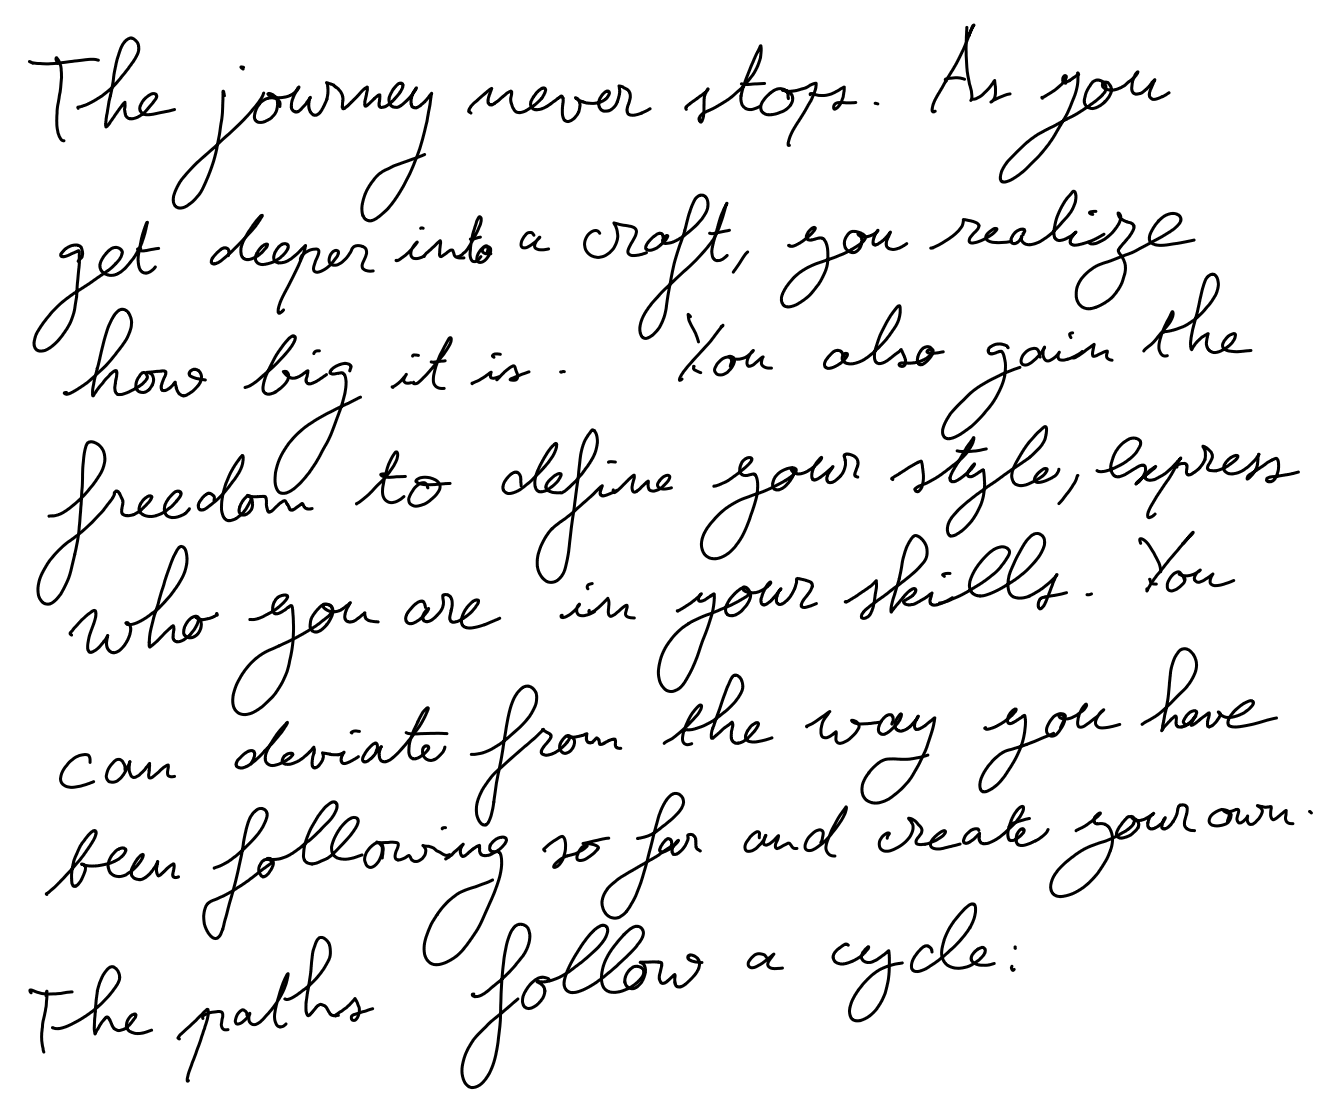 The journey never stops. As you
get deeper into a craft, you realize
how big it is. You also gain the
freedom to define your style, express
who you are in your skills. You
can deviate from the way you have
been following so far and create your own.
The paths follow a cycle: